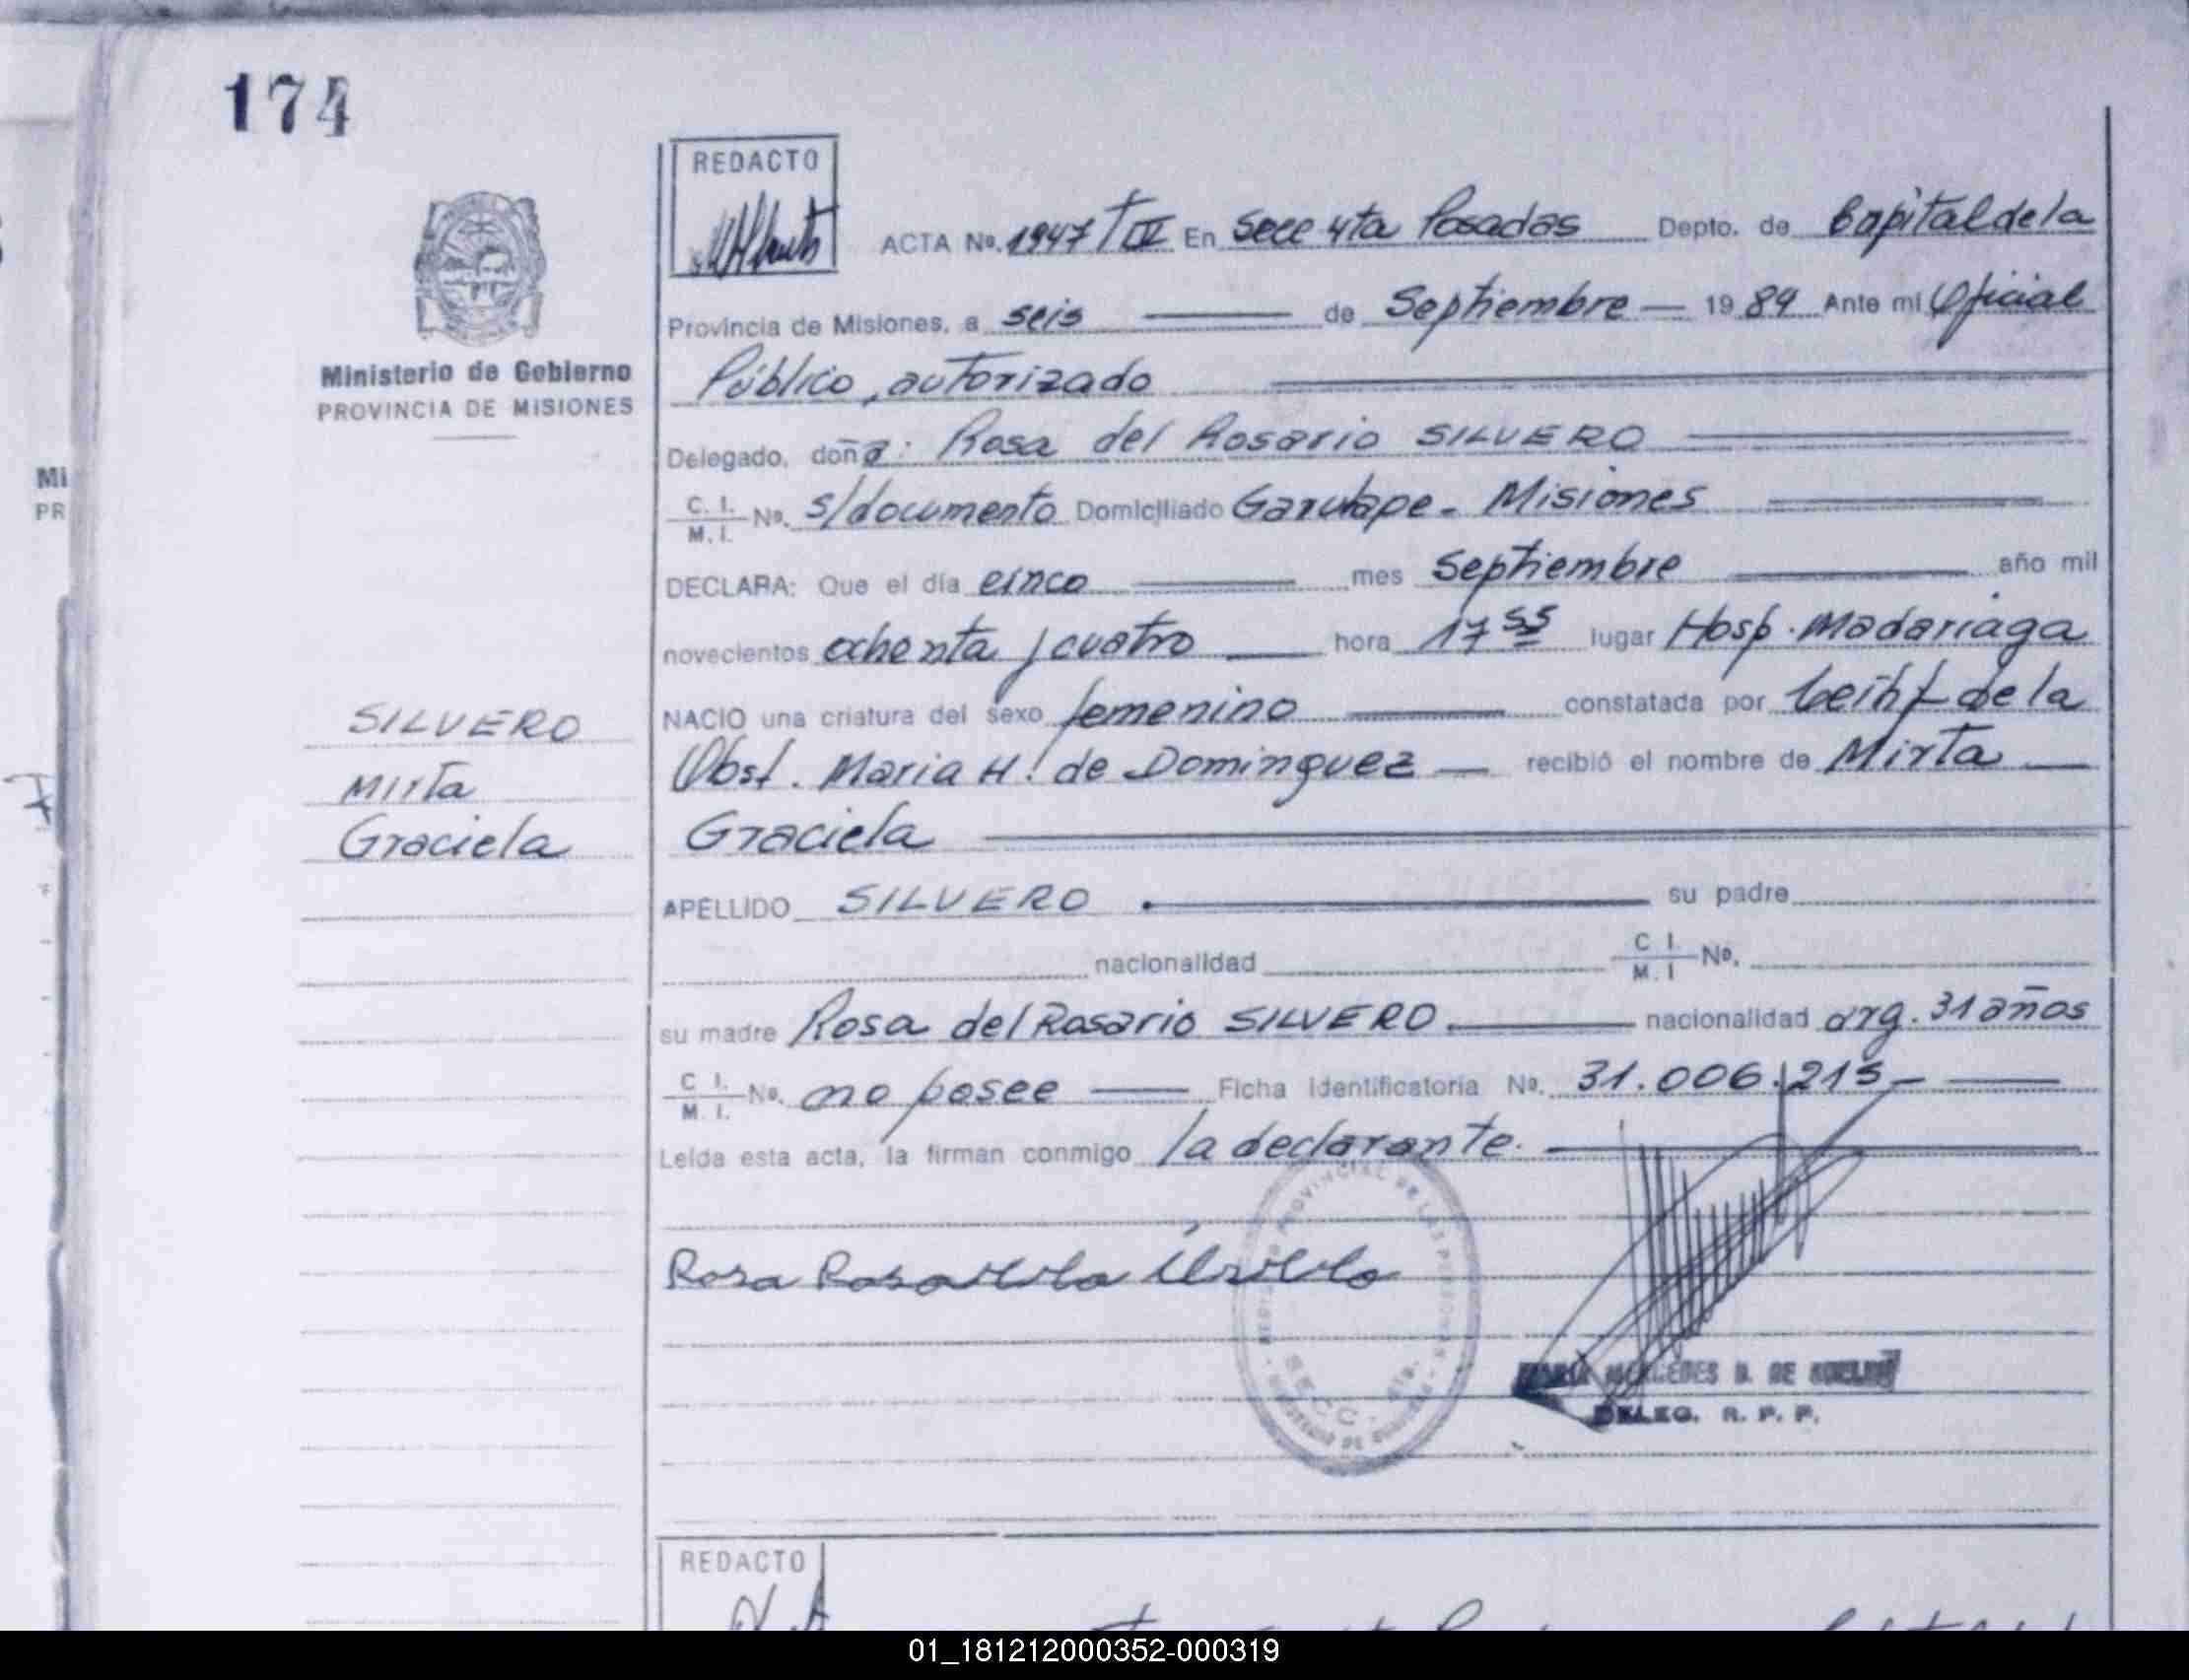 174
REDACTO
ACTA No. 1947 T IV En Secc 4ta Posadas Depto. de Capital de la
Provincia de Misiones, a seis de Septiembre 19 84 Ante mi Oficial
Público, autorizado
Ministerio de Gobierno
PROVINCIA DE MISIONES
Delegado, doña: Rosa del Rosario SILVERO
C. I. M. I. No. s/documento Domiciliado Garuhape - Misiones
Mi
PR
DECLARA: Que el día cinco mes Septiembre año mil
novecientos ochenta y cuatro hora 17 55 lugar Hosp. Madariaga
SILVERO
NACIO una criatura del sexo femenino constatada por Certif de la
Mirta
Obst. Maria H. de Dominguez recibió el nombre de Mirta
Graciela
Graciela
APELLIDO SILVERO su padre
nacionalidad C I. M. I No.
su madre Rosa del Rosario SILVERO nacionalidad arg. 31 años
C I. M. I. No. no posee Ficha Identificatoria No. 31.006.215
Leída esta acta, la firman conmigo la declarante.
Rosa
REGISTRO PROVINCIAL DE LAS PERSONAS
SECC. 4ta.
MARIA MERCEDES D. DE
DELEG. R. P. P.
REDACTO
01_181212000352-000319